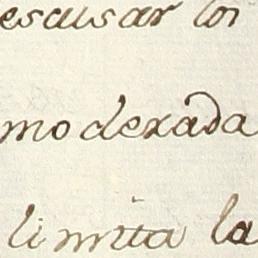 escusar los
moderada
limita la